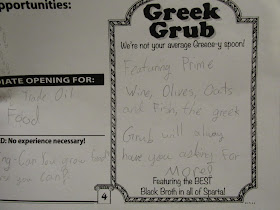 opportunities:
IATE OPENING FOR:
Trade Oil
Food
D: No experience necessary!
Can
you can?
Greek
Grub
We're not your average Greece-y spoon!
Featuring Prime
Wine, Olives, Oats
and Fish, the greek
Grub will always
have you asking for
MORE!
Featuring the BEST
Black Broth in all of Sparta!
4